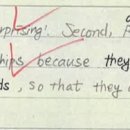 rprising'. Second,
ships because they
ds, so that they